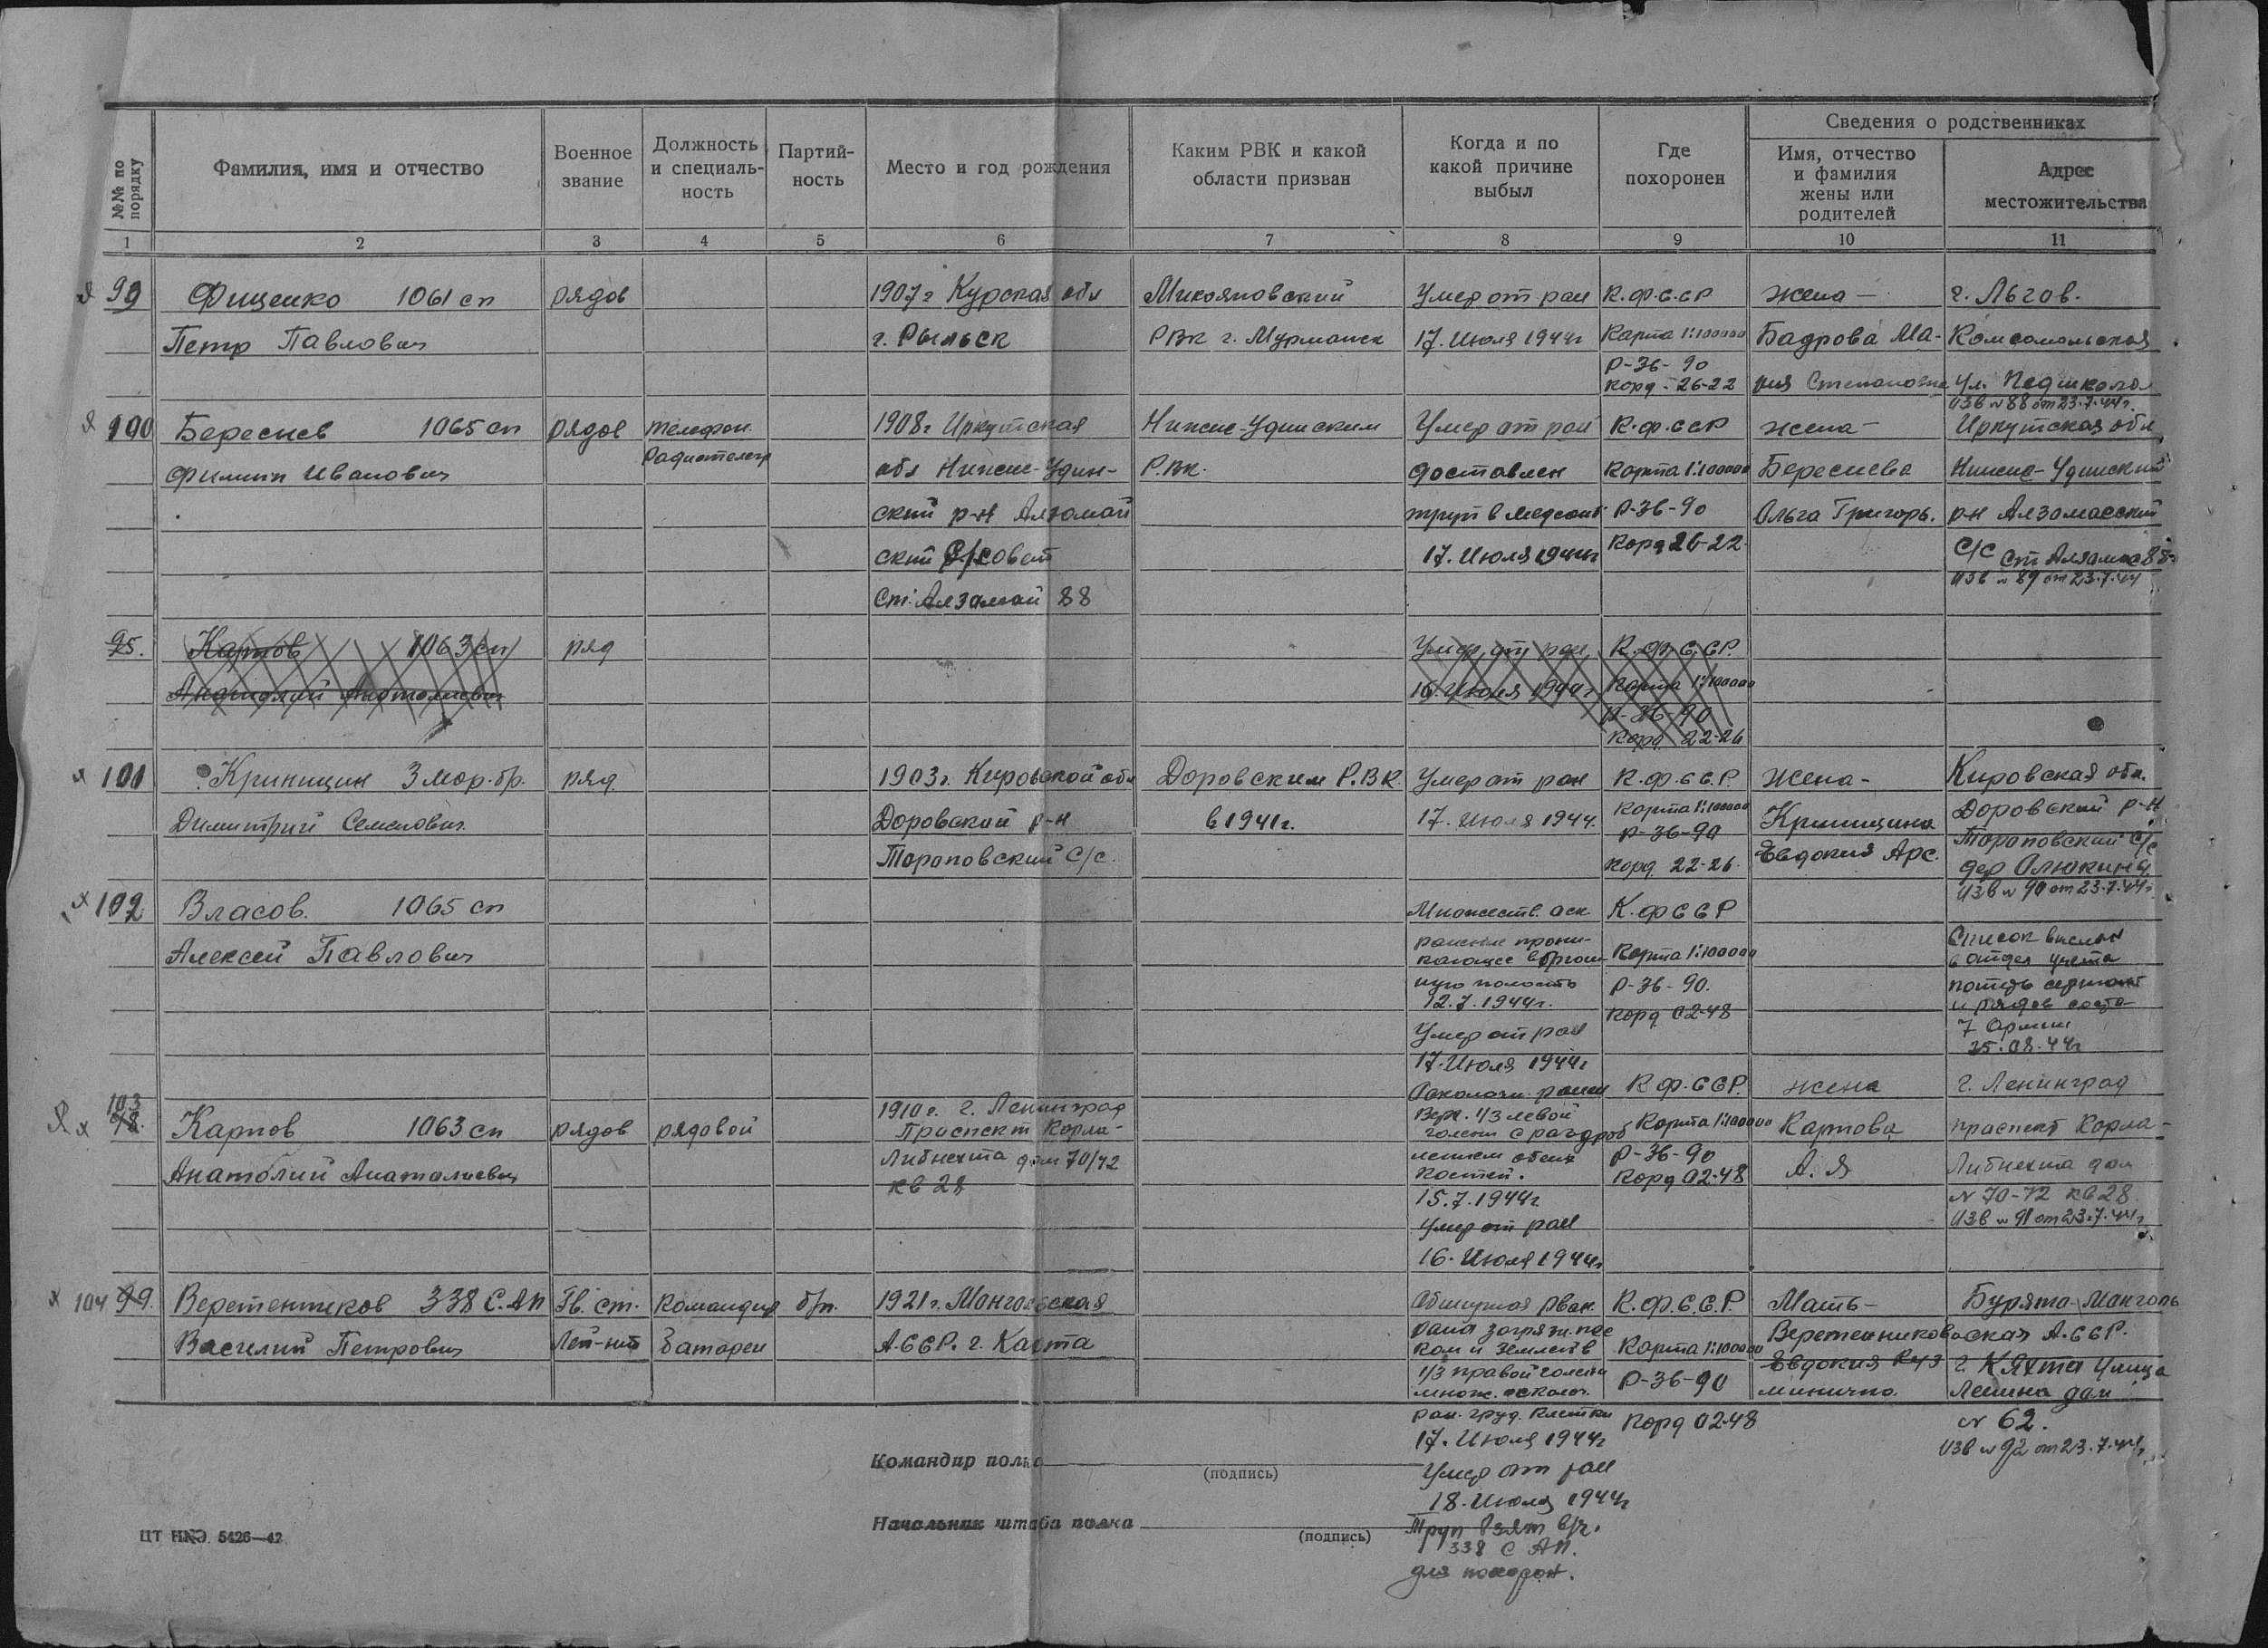 №№ по порядку
Фамилия, имя и отчество
Военное звание
Должность и специаль-ность
Партий-ность
Место и год рождения
Каким РВК и какой области призван
Когда и по какой причине выбыл
Где похоронен
Сведения о родственниках
Имя, отчество и фамилия жены или родителей
Адрес местожительства
1 2 3 4 5 6 7 8 9 10 11
99 Фищенко 1061 сп рядов 1907 г Курская обл Микояновский Умер от ран К.Ф.С.СР жена — г. Льгов.
Петр Павлович г. Рыльск РВК г. Мурманск 17. Июля 1944г Карта 1:100000 Бадрова Ма- Комсомольская
Р-36-90
Корд - 26-22 рия Степановна ул. Педшкола
Изв № 88 от 23.7.44г.
100 Береснев 1065 сп рядов телефон. 1908г Иркутская Нижне-Удинским Умер от ран К.Ф.ССР жена — Иркутская обл
Филипп Иванович Радиотелегр обл Нижне-Удин- Р.ВК. доставлен Карта 1:100000 Береснева Нижне-Удинский
ский р-н Алзамай труп в медсанб Р-36-90 Ольга Григорь. р-н
ский с/совет 17. Июля 1944г Корд 26-22 С/С ст
Ст. Алзамай 88 Изв № 89 от 23.7.44
95. Карпов 1063 сп ряд Умер от ран К.Ф.С.СР.
Анатолий Анатолиевич 16 Июля 1944г Карта 1:100000
Р-36-90
Корд 22-26
101 Криницин 3 мор. бр. ряд 1903г. Кировской обл Даровским Р.ВК Умер от ран К.Ф.ССР. Жена — Кировская обл.
Димитрий Семенович Доровский р-н в 1941г. 17. Июля 1944. Карта 1:100000 Криницина Доровский р-н
Р-36-90
Тороповский С/с. Корд 22-26. Евдокия Арс. Тороповский С/с
дер
Изв № 90 от 23.7.44г
102 Власов. 1065 сп Множеств. оск. К.ФССР
Алексей Павлович ранение прони- Карта 1:100000 Список выслан
кающее в брюш- в отдел учета
ную полость Р-36-90. потерь сержант
12.7.1944г. Корд 02-48 и рядов соста-
Умер от ран 7 Армии
17. Июля 1944г 25.08.44г
103 98. Карпов 1063 сп рядов рядовой 1910г. г. Ленинград Осколочн. ранен К.Ф.ССР. жена г. Ленинград
Анатолий Анатолиевич Проспект Карла- Верх. 1/3 левой Карта 1:100000 Карпова проспект Карла-
Либнехта дом 70/72 голени с раздроб Р-36-90 А. Я Либнехта дом
кв 28 лением обеих Корд 02-48 № 70-72 кв 28
костей. Изв № 91 от 23.7.44г
15.7.1944г.
Умер от ран
16. Июля 1944г
104 99. Веретенников 338 С.АП Гв. ст. командир б/п. 1921г. Монгольская Обширная рван. К.Ф.С.С.Р. Мать — Бурято-Монголь
Василий Петрович Лей-нт батареи А.ССР. г. Кяхта рана загрязн. пес Карта 1:100000 Веретенникова ская А.ССР.
ком и землей в Евдокия Куз г. Кяхта улица
1/3 правой голени Р-36-90 минична. Ленина дом
множ. осколоч.
ран. груд. клетки Корд 02-48 № 62.
17. Июля 1944г Изв № 92 от 23.7.44г.
Умер от ран
18. Июля 1944г
Труп взят в/ч.
338 С АП.
для похорон.
Командир полка
(подпись)
Начальник штаба полка
(подпись)
ЦТ НКО 5426—42